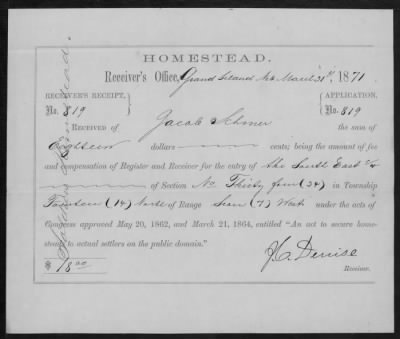 HOMESTEAD.
Receiver's Office, Grand Island Neb March 31st, 1871.
RECEIVER'S RECEIPT,
No. 819
APPLICATION,
No. 819
RECEIVED OF Jacob the sum
of Eighteen dollars cents; being the amount of fee
and compensation of Register and Receiver for the entry of the South East 1/4
of Section No Thirty four (34) in Township
Fourteen (14) North of Range Seven (7) West under the acts of
Congress approved May 20, 1862, and March 21, 1864, entitled "An act to secure home-
steads to actual settlers on the public domain."
$ 18.00
J. C. Denise
Receiver.